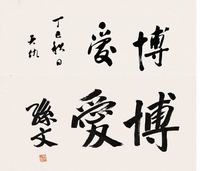 博愛
丁巳秋日
天仇
博愛
孫文